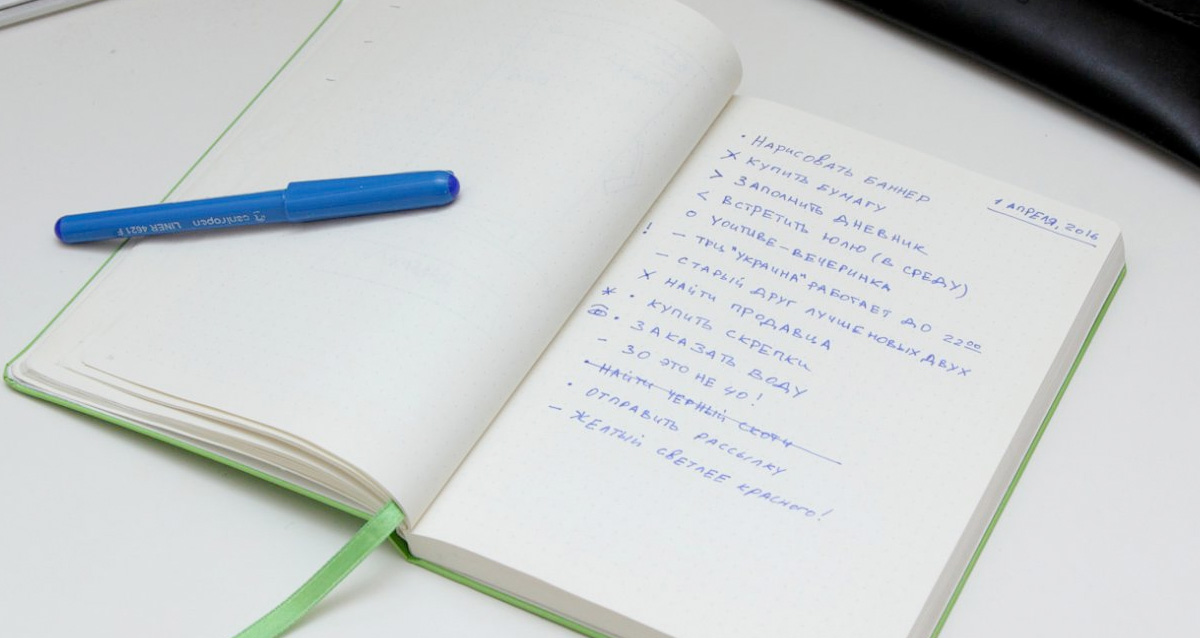 1 АПРЕЛЯ, 2016
• НАРИСОВАТЬ БАННЕР
× КУПИТЬ БУМАГУ
> ЗАПОЛНИТЬ ДНЕВНИК
< ВСТРЕТИТЬ ЮЛЮ (В СРЕДУ)
o YOUTUBE-ВЕЧЕРИНКА
! – ТРЦ "УКРАИНА" РАБОТАЕТ ДО 22⁰⁰
– СТАРЫЙ ДРУГ ЛУЧШЕ НОВЫХ ДВУХ
× НАЙТИ ПРОДАВЦА
* • КУПИТЬ СКРЕПКИ
• ЗАКАЗАТЬ ВОДУ
– 30 ЭТО НЕ 40!
• НАЙТИ ЧЕРНЫЙ СКОТЧ
• ОТПРАВИТЬ РАССЫЛКУ
– ЖЕЛТЫЙ СВЕТЛЕЕ КРАСНОГО!
centropen LINER 4621 F